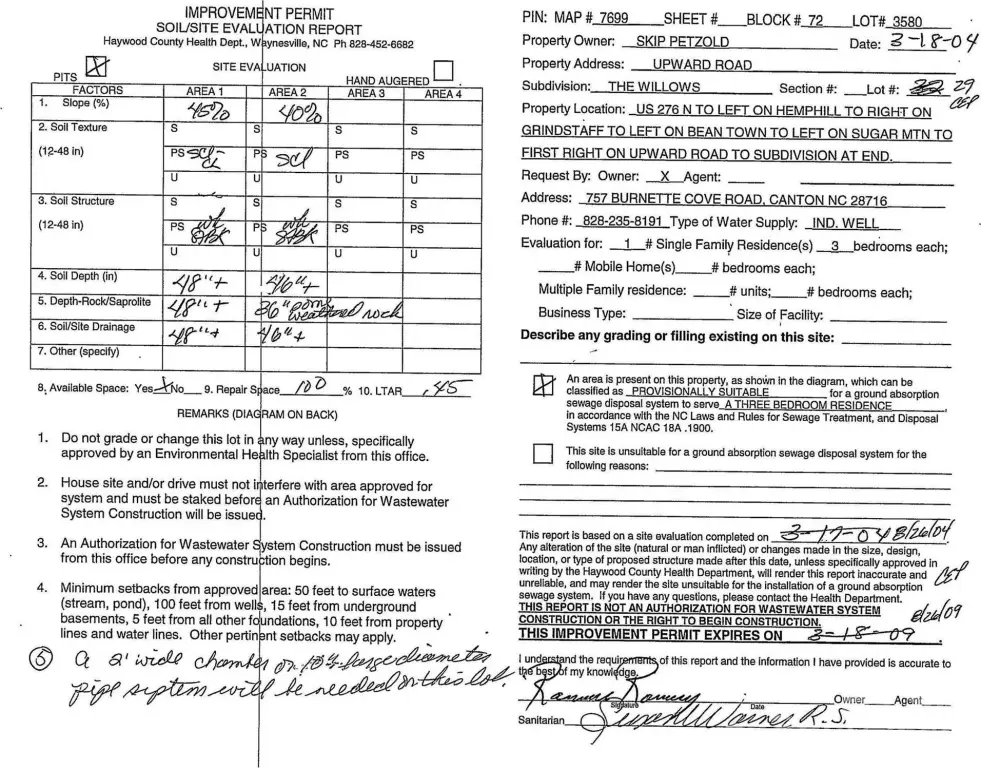 IMPROVEMENT PERMIT
SOIL/SITE EVALUATION REPORT
Haywood County Health Dept., Waynesville, NC Ph 828-452-6682
PITS X SITE EVALUATION HAND AUGERED
FACTORS AREA 1 AREA 2 AREA 3 AREA 4
1. Slope (%) 45% 40%
2. Soil Texture S S S S
(12-48 in) PS SCL-CL PS SCL PS PS
U U U U
3. Soil Structure S S S S
(12-48 in) PS wk SBK PS wk SBK PS PS
U U U U
4. Soil Depth (in) 48"+ 46"+
5. Depth-Rock/Saprolite 48"+ 36" some weathered rock
6. Soil/Site Drainage 48"+ 46"+
7. Other (specify)
8. Available Space: Yes X No 9. Repair Space 100 % 10. LTAR .45
REMARKS (DIAGRAM ON BACK)
1. Do not grade or change this lot in any way unless, specifically
approved by an Environmental Health Specialist from this office.
2. House site and/or drive must not interfere with area approved for
system and must be staked before an Authorization for Wastewater
System Construction will be issued.
3. An Authorization for Wastewater System Construction must be issued
from this office before any construction begins.
4. Minimum setbacks from approved area: 50 feet to surface waters
(stream, pond), 100 feet from wells, 15 feet from underground
basements, 5 feet from all other foundations, 10 feet from property
lines and water lines. Other pertinent setbacks may apply.
5 A 2' wide chamber or 10" large diameter
pipe system will be needed on this lot.
PIN: MAP # 7699 SHEET # BLOCK # 72 LOT# 3580
Property Owner: SKIP PETZOLD Date: 3-18-04
Property Address: UPWARD ROAD
Subdivision: THE WILLOWS Section #: Lot #: 29
CEP
Property Location: US 276 N TO LEFT ON HEMPHILL TO RIGHT ON
GRINDSTAFF TO LEFT ON BEAN TOWN TO LEFT ON SUGAR MTN TO
FIRST RIGHT ON UPWARD ROAD TO SUBDIVISION AT END.
Request By: Owner: X Agent:
Address: 757 BURNETTE COVE ROAD, CANTON NC 28716
Phone #: 828-235-8191 Type of Water Supply: IND. WELL
Evaluation for: 1 # Single Family Residence(s) 3 bedrooms each;
# Mobile Home(s) # bedrooms each;
Multiple Family residence: # units; # bedrooms each;
Business Type: Size of Facility:
Describe any grading or filling existing on this site:
X An area is present on this property, as shown in the diagram, which can be
classified as PROVISIONALLY SUITABLE for a ground absorption
sewage disposal system to serve A THREE BEDROOM RESIDENCE,
in accordance with the NC Laws and Rules for Sewage Treatment, and Disposal
Systems 15A NCAC 18A .1900.
This site is unsuitable for a ground absorption sewage disposal system for the
following reasons:
This report is based on a site evaluation completed on 3-17-04 8/26/04.
Any alteration of the site (natural or man inflicted) or changes made in the size, design,
location, or type of proposed structure made after this date, unless specifically approved in
writing by the Haywood County Health Department, will render this report inaccurate and
unreliable, and may render the site unsuitable for the installation of a ground absorption
sewage system. If you have any questions, please contact the Health Department.
CEP
THIS REPORT IS NOT AN AUTHORIZATION FOR WASTEWATER SYSTEM
CONSTRUCTION OR THE RIGHT TO BEGIN CONSTRUCTION.
8/26/09
THIS IMPROVEMENT PERMIT EXPIRES ON 3-18-09.
I understand the requirements of this report and the information I have provided is accurate to
the best of my knowledge.
Signature Date Owner Agent
Sanitarian R.S.